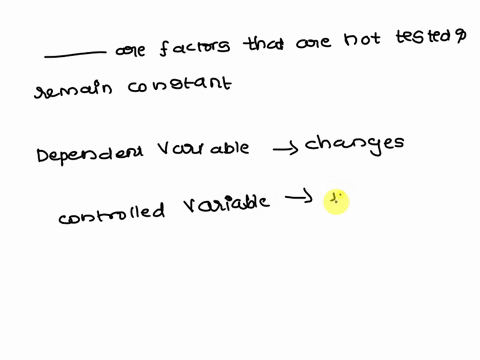 ______ are factors that are not tested &
remain constant
Dependent Variable → changes
controlled Variable →